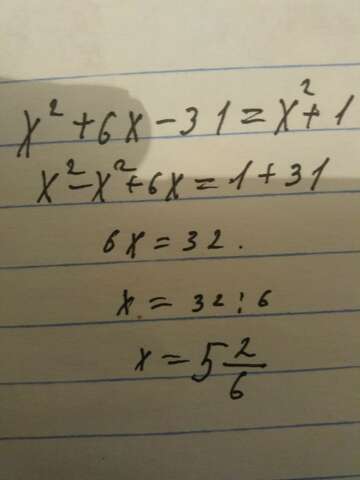 x² + 6x - 31 = x² + 1
x² - x² + 6x = 1 + 31
6x = 32.
x = 32 : 6
x = 5 2/6